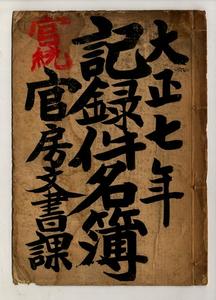 大正七年
記録件名簿
官房文書課
官統